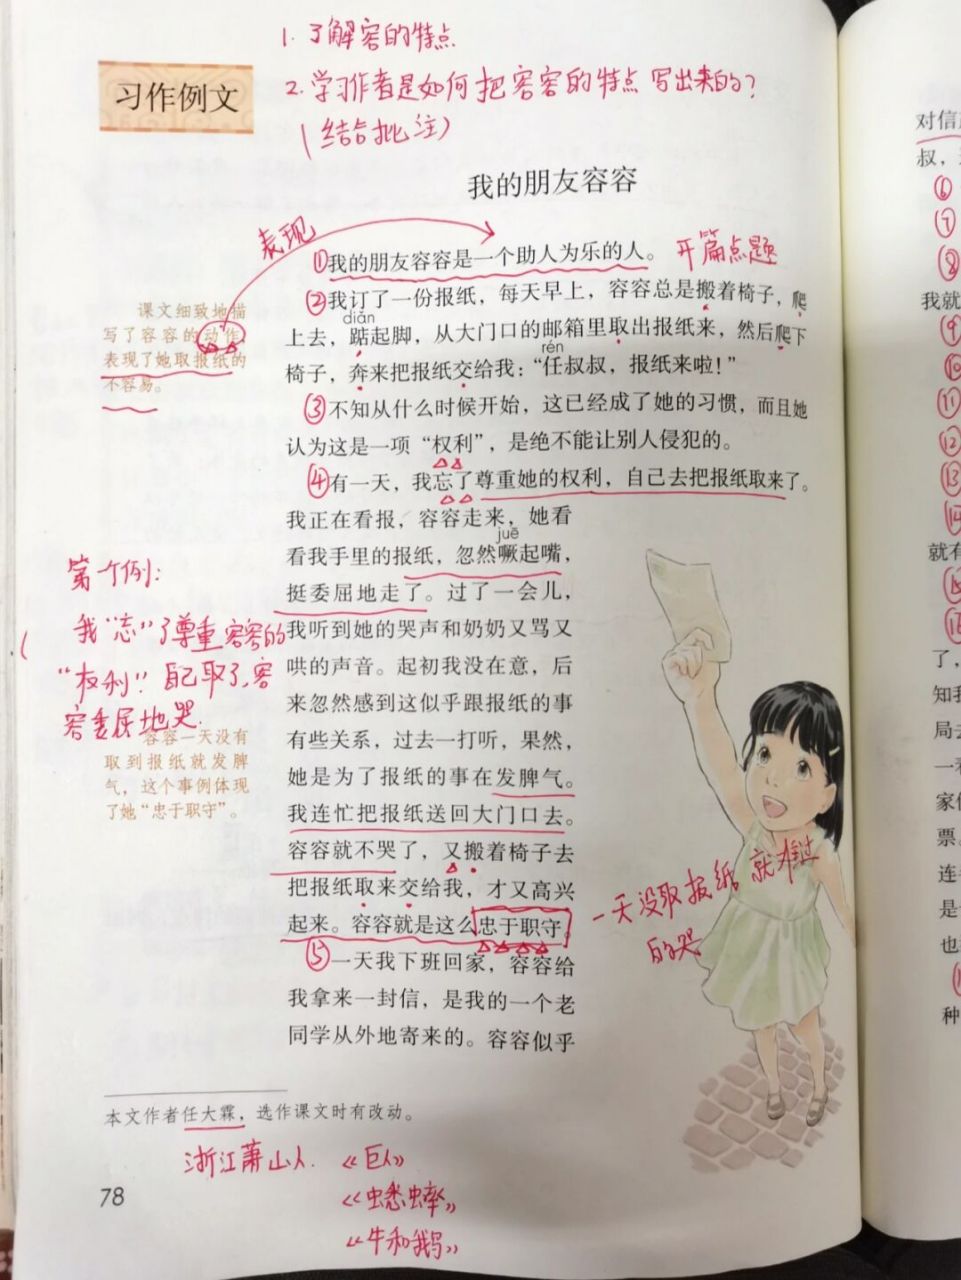 1. 了解容的特点
2. 学习作者是如何把容容的特点写出来的？
（结合批注）
习作例文
我的朋友容容
表现
①我的朋友容容是一个助人为乐的人。 开篇点题
②我订了一份报纸，每天早上，容容总是搬着椅子，爬
diǎn
上去，踮起脚，从大门口的邮箱里取出报纸来，然后爬下
rén
椅子，奔来把报纸交给我：“任叔叔，报纸来啦！”
③不知从什么时候开始，这已经成了她的习惯，而且她
认为这是一项“权利”，是绝不能让别人侵犯的。
④有一天，我忘了尊重她的权利，自己去把报纸取来了。
我正在看报，容容走来，她看
juē
看我手里的报纸，忽然噘起嘴，
挺委屈地走了。过了一会儿，
我听到她的哭声和奶奶又骂又
哄的声音。起初我没在意，后
来忽然感到这似乎跟报纸的事
有些关系，过去一打听，果然，
她是为了报纸的事在发脾气。
我连忙把报纸送回大门口去。
容容就不哭了，又搬着椅子去
把报纸取来交给我，才又高兴
起来。容容就是这么忠于职守。
⑤一天我下班回家，容容给
我拿来一封信，是我的一个老
同学从外地寄来的。容容似乎
课文细致地描
写了容容的动作，
表现了她取报纸的
不容易。
第一个例：
我“忘”了尊重容容的
“权利”！自己取了，容
容委屈地哭．
容容一天没有
取到报纸就发脾
气，这个事例体现
了她“忠于职守”。
一天没取报纸就难过
的哭
本文作者任大霖，选作课文时有改动。
浙江萧山人． 《巨人》
《蟋蟀》
《牛和鹅》
78
对信
叔，
⑥
⑦
⑧
我就
⑨
⑩
⑪
⑫
⑬
⑭
就有
⑮
⑯
了，
知我
局去
一
家
票。
连
是
也
种